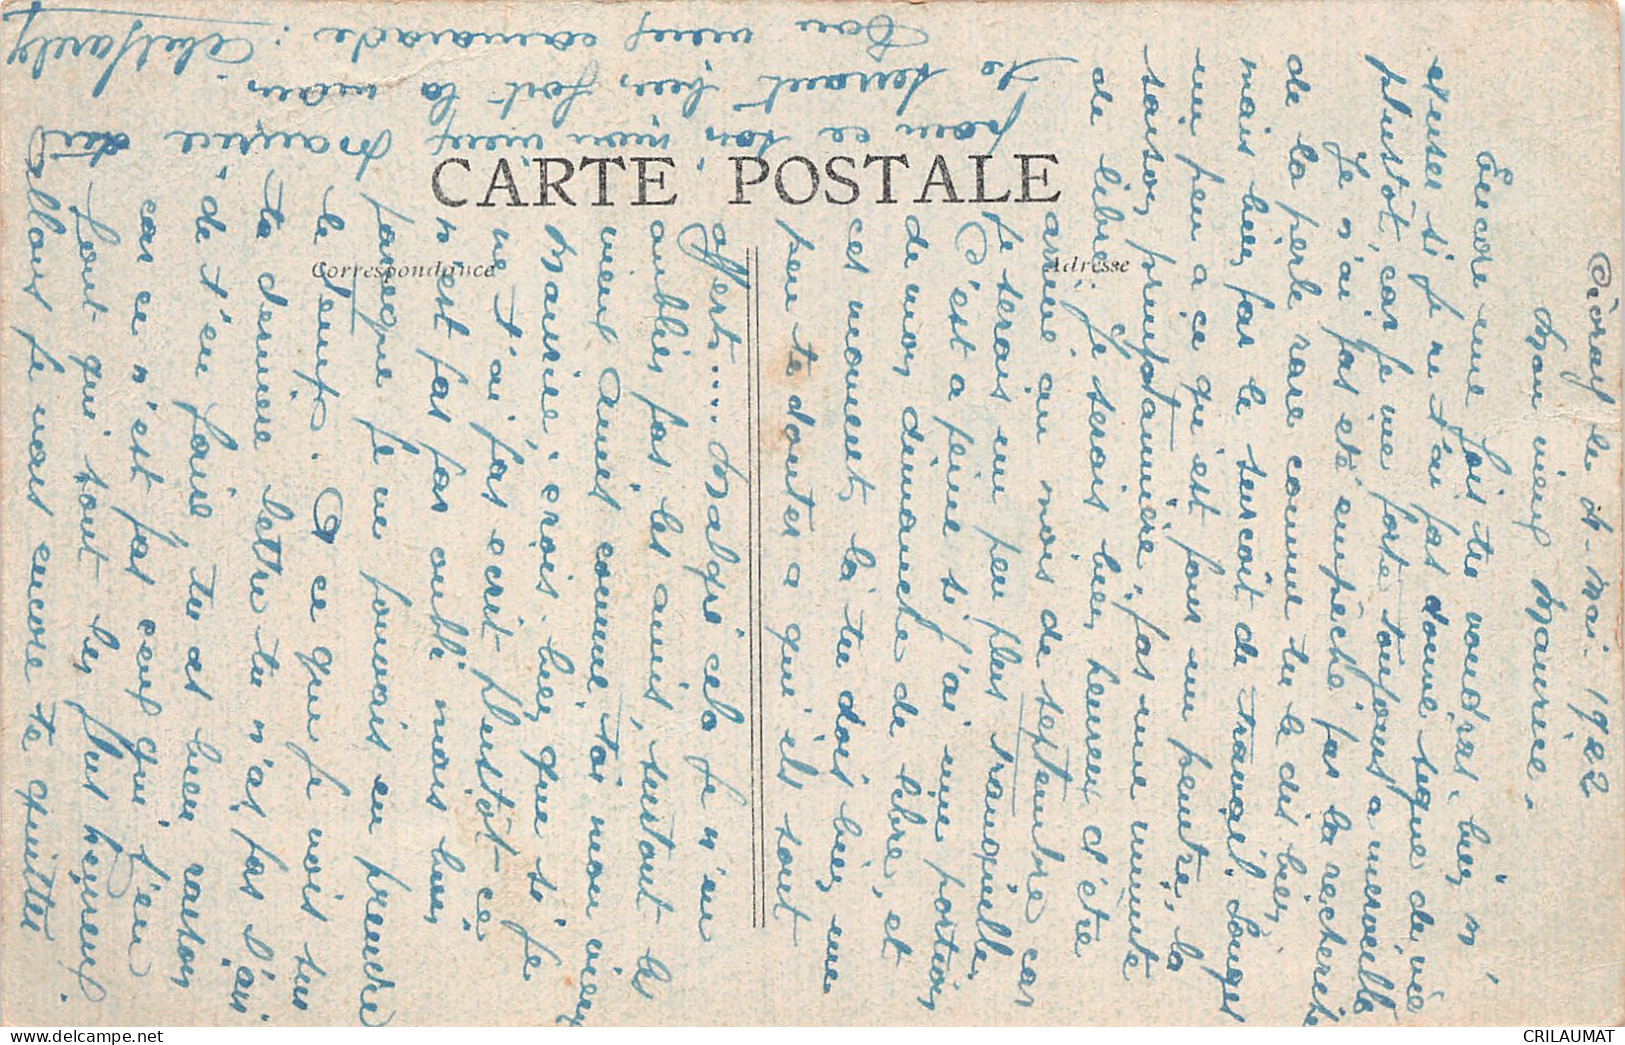 CARTE POSTALE
Correspondance
Adresse
Civray le 2 - Mai - 1922
Mon vieux Maurice.
Encore une fois tu voudras bien m'
excuser si je ne t'ai pas donné signe de vie
plus tôt, car je me porte toujours a merveille
Je n'ai pas été empêché par la recherche
de la perle rare comme tu le dis bien
mais bien par le surcoît de travail. Songes
un peu a ce qu'est pour un peintre, la
saison printannière, pas une minute
de libre. Je serais bien heureux d'être
arrivé au mois de septembre car
je serais un peu plus tranquille.
C'est a peine si j'ai une portion
de mon dimanche de libre, et
cet moment là tu dois bien un
peu te douter a qui ils sont
offert.... Malgré cela je n'en
oublies pas les amis, surtout les
vieux Amis comme toi mon vieux
Maurice, crois bien que si je
ne t'ai pas ecrit plus tôt ce
n'est pas par oubli mais bien
parceque je ne pouvais en prendre
le temps. A ce que je vois sur
ta derniere lettre tu n'as pas l'air
de t'en faire, tu as bien raison
car ce n'est pas ceux qui s'en
font qui sont les plus heureux.
Allons je vais encore te quitter
pour ce soir, mon vieux Maurice
te serrant bien fort la main.
Ton vieux camarade :
CRILAUMAT